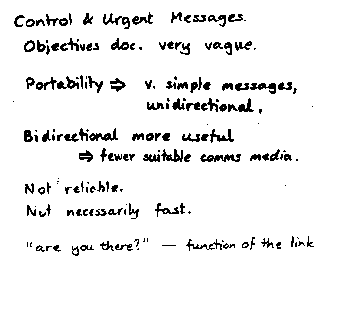 Control & Urgent Messages.
Objectives doc. very vague.
Portability ⇒ v. simple messages,
unidirectional.
Bidirectional more useful
⇒ fewer suitable comms media.
Not reliable.
Not necessarily fast.
"are you there?" — function of the link